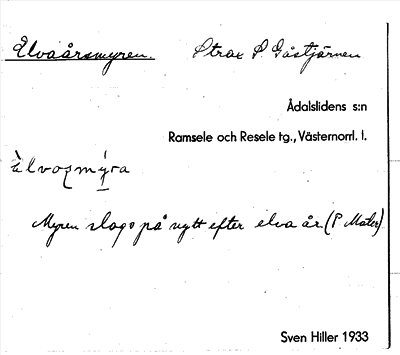 Elvaårsmyren. Strax S. Gåstjärnen
Ådalslidens s:n
Ramsele och Resele tg., Västernorrl. l.
Myren slogs på nytt efter elva år. (P Mater)
Sven Hiller 1933